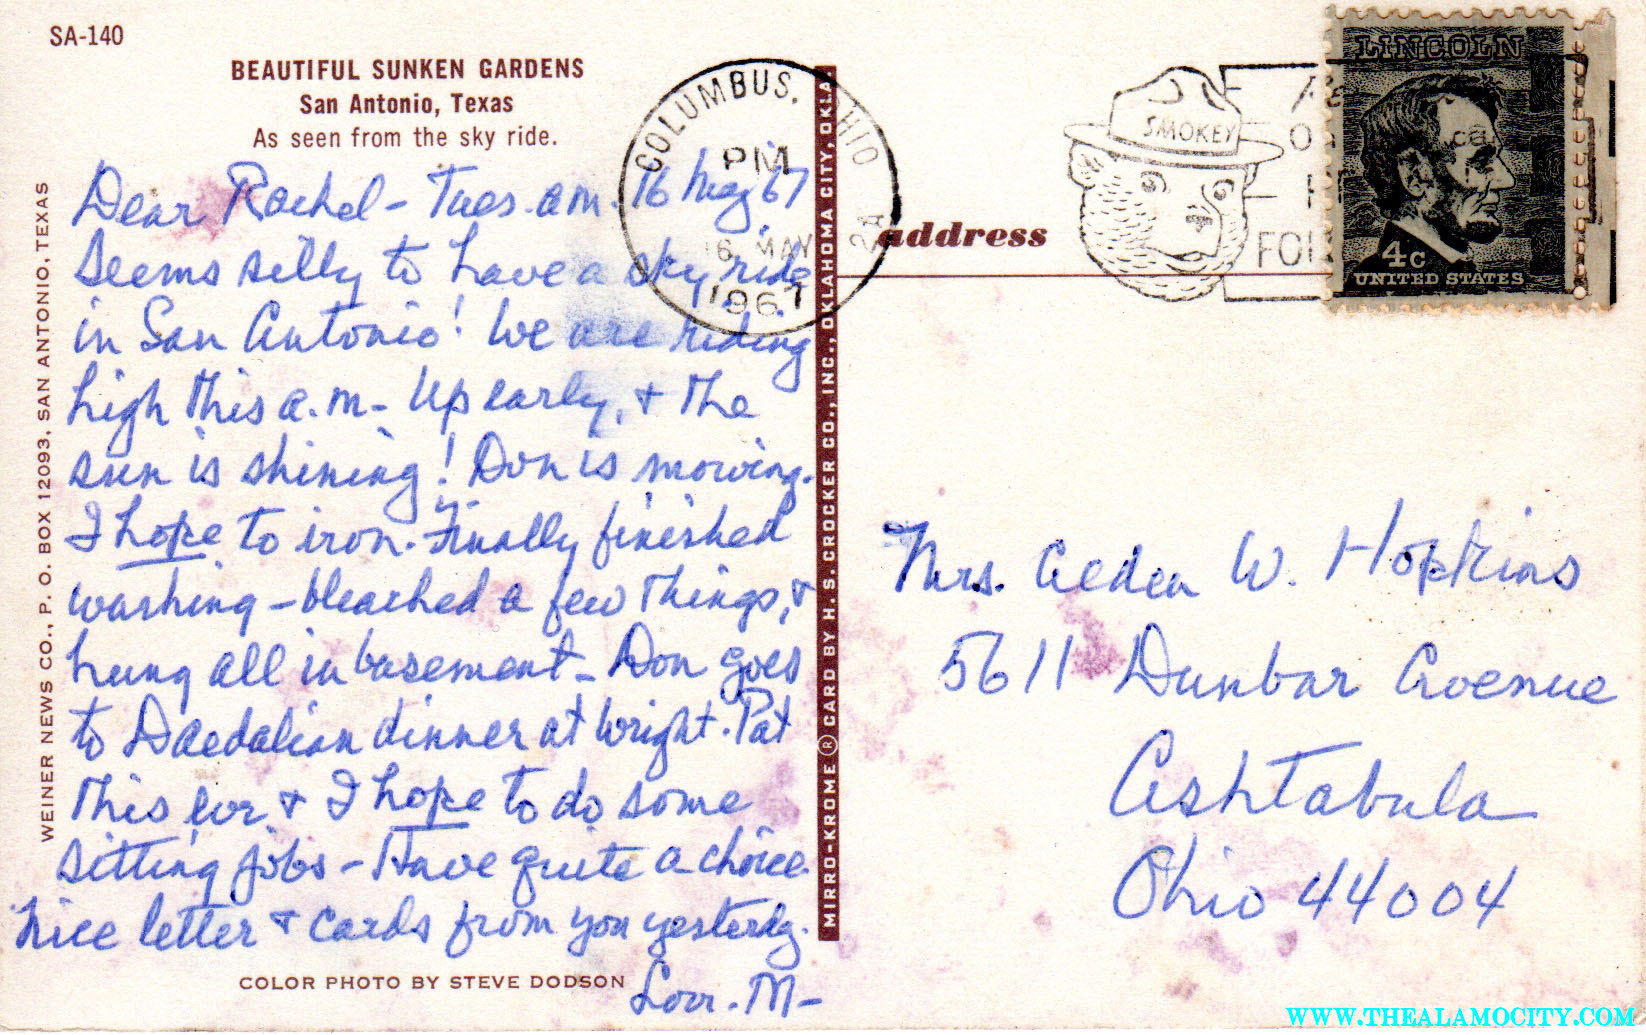 SA-140
BEAUTIFUL SUNKEN GARDENS
San Antonio, Texas
As seen from the sky ride.
Dear Rachel - Tues. a.m. 16 May 67
Seems silly to have a sky ride
in San Antonio! We are riding
high this a.m. - Up early, & the
sun is shining! Don is mowing.
I hope to iron. Finally finished
washing - bleached a few things, &
hung all in basement - Don goes
to Daedalian dinner at Wright. Pat
this eve & I hope to do some
sitting jobs - Have quite a choice.
Nice letter & cards from you yesterdy.
Love. M-
COLOR PHOTO BY STEVE DODSON
WEINER NEWS CO., P. O. BOX 12093, SAN ANTONIO, TEXAS
MIRRO-KROME ® CARD BY H. S. CROCKER CO., INC., OKLAHOMA CITY, OKLA.
COLUMBUS, OHIO
PM
16 MAY
1967
address
SMOKEY
LINCOLN
4c
UNITED STATES
Mrs. Alden W. Hopkins
5611 Dunbar Avenue
Ashtabula
Ohio 44004
WWW.THEALAMOCITY.COM